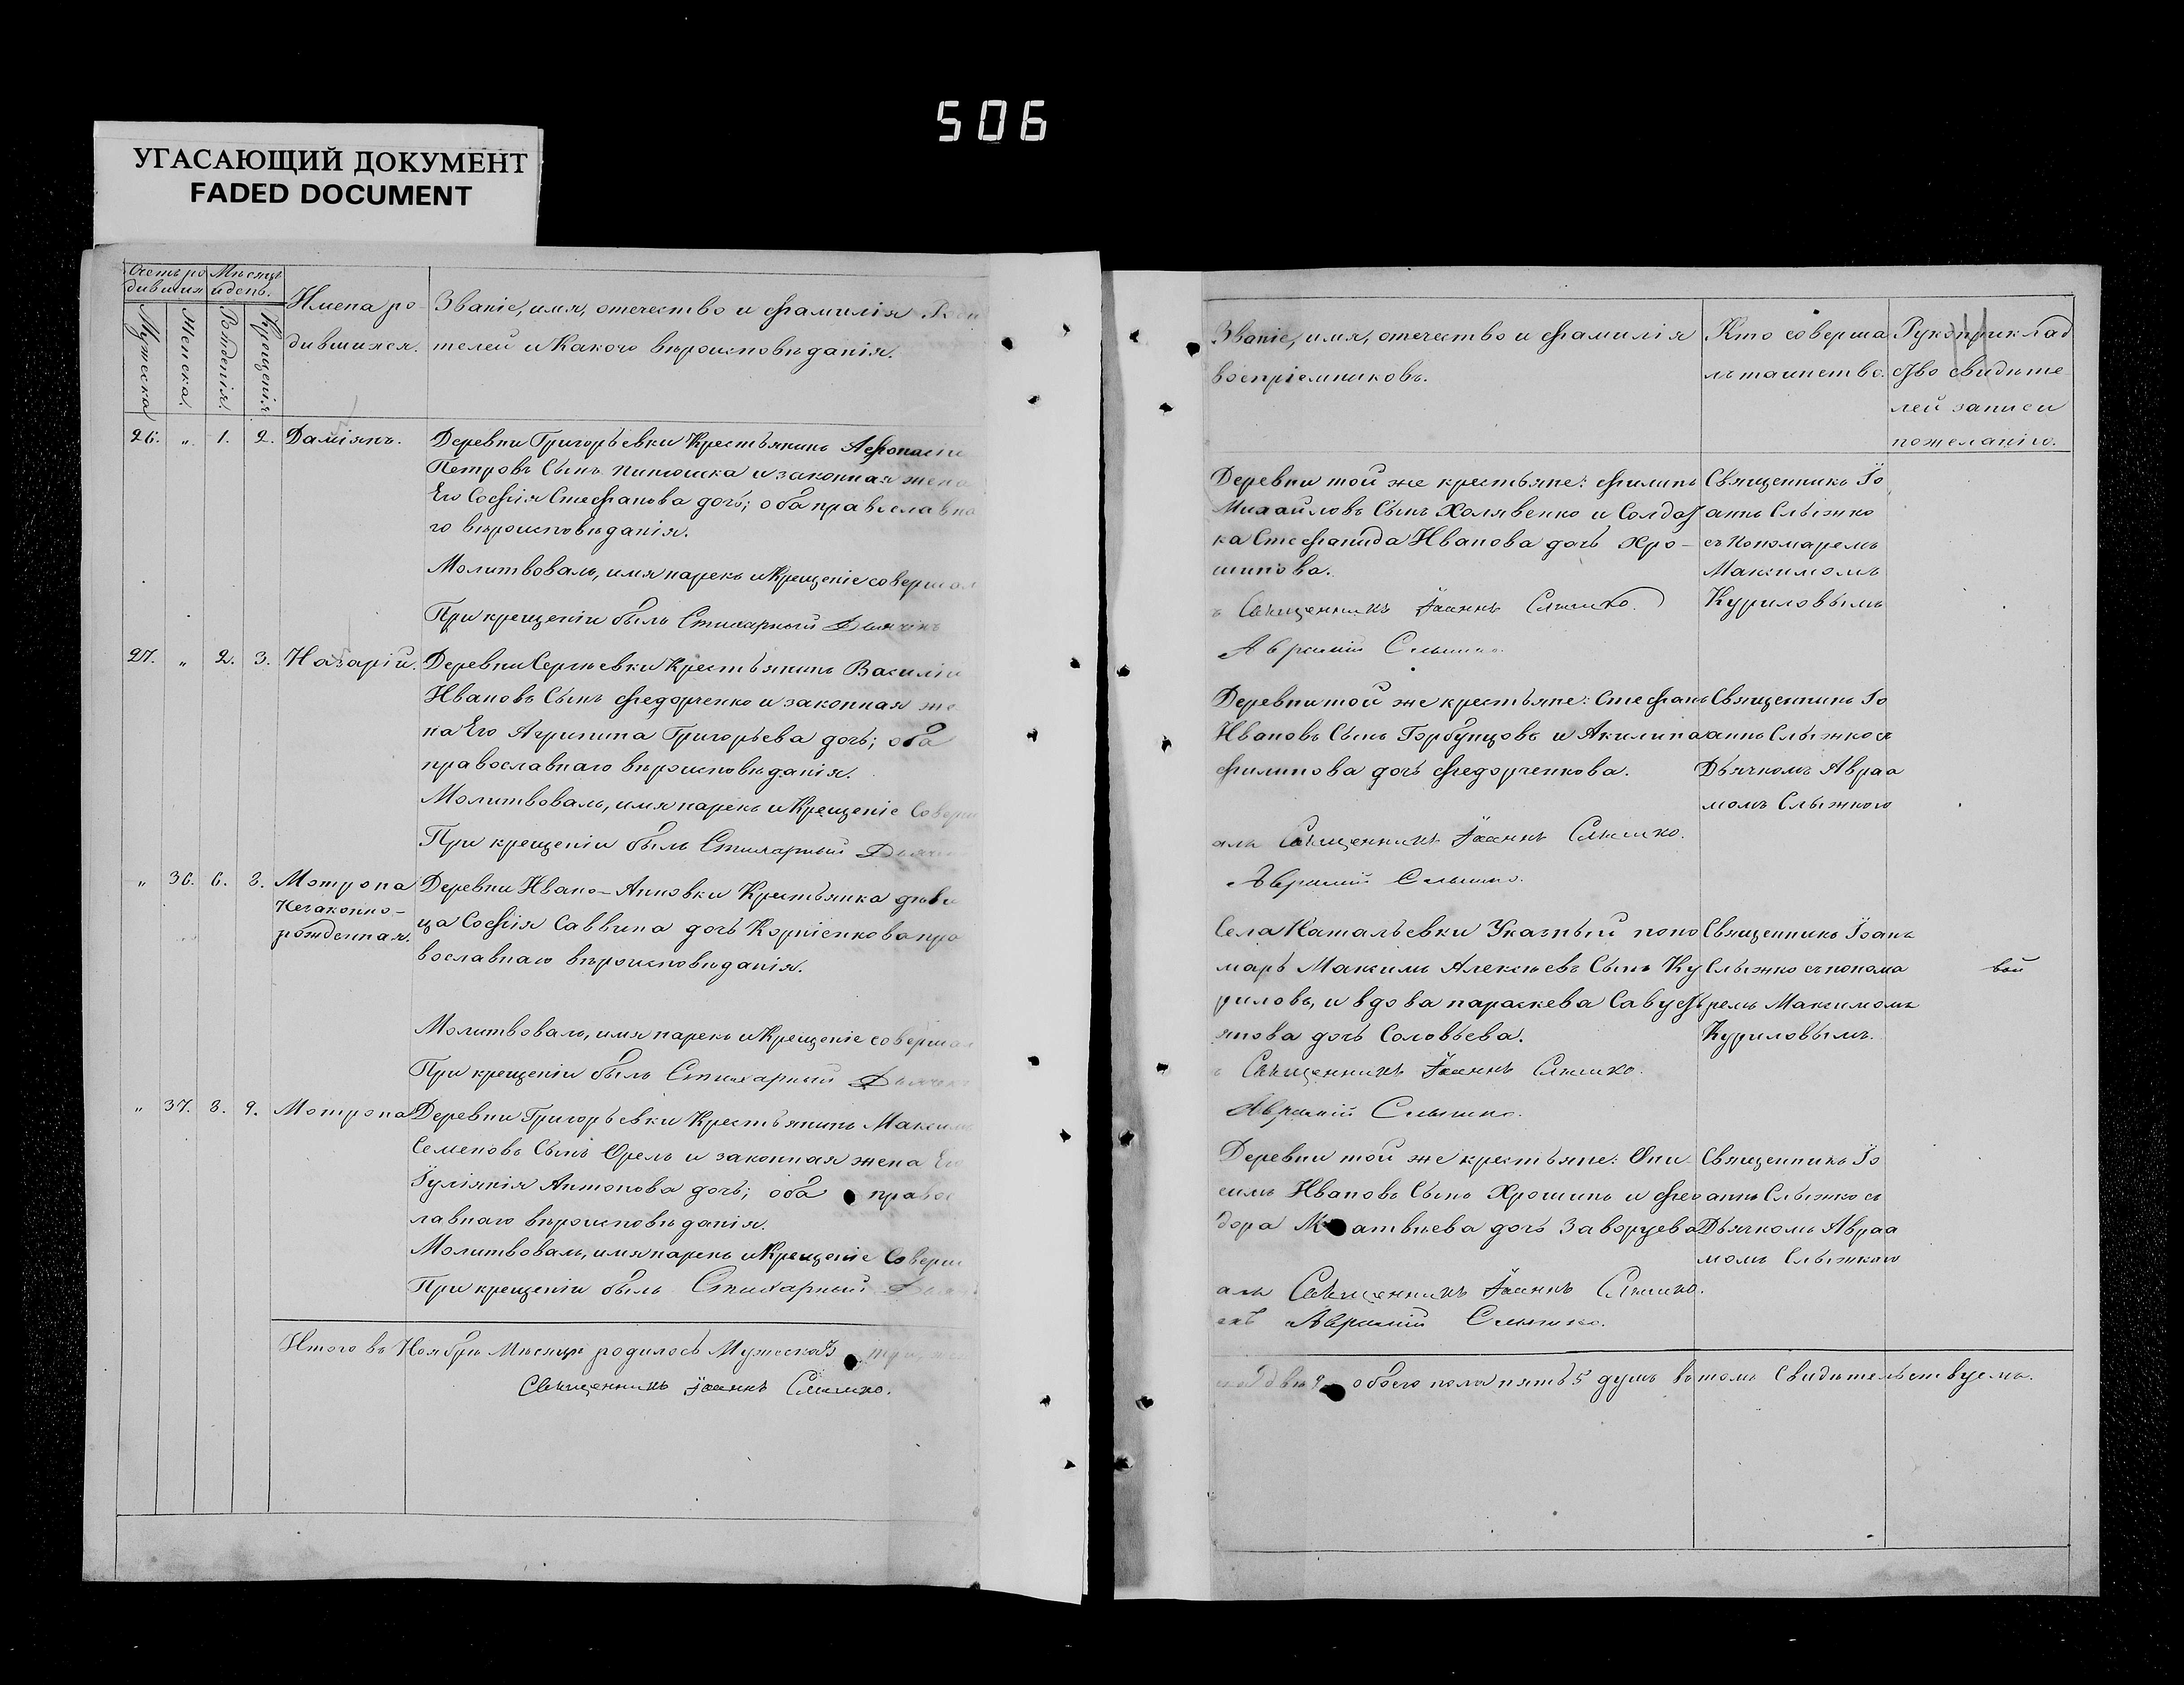 506
УГАСАЮЩИЙ ДОКУМЕНТ
FADED DOCUMENT
Счетъ ро
дившихся
Мѣсяцъ
и день.
Мужеска
Женска.
Рожденія.
Крещенія
Имена ро-
дившихся.
Званіе, имя, отечество и фамилія Роди
телей и Какого вѣроисповѣданія.
26. „ 1. 2. Даміянъ.
Деревни Григорьевки Крестьянинъ Афонасій
Петровъ Сынъ и законная жена
Его Софія Стефанова дочь; оба православна
го вѣроисповѣданія.
Молитвовалъ, имя нарекъ и Крещеніе совершал
При крещеніи былъ Стихарный Дьячокъ
27. „ 2. 3. Назарій.
Деревни Сергѣевки Крестьянинъ Василій
Ивановъ Сынъ Федорченко и законная же
на Его Агрипина Григорьева дочь; оба
православнаго вѣроисповѣданія.
Молитвовалъ, имя нарекъ и Крещеніе Соверш
При крещеніи былъ Стихарный Дьячо
„ 36. 6. 8. Мотрона
Незаконно-
рожденная.
Деревни Ивано-Анновки Крестьянка дѣви
ца Софія Саввина дочь Корніенкова пра
вославнаго вѣроисповѣданія.
Молитвовалъ, имя нарекъ и Крещеніе совершал
При крещеніи былъ Стихарный Дьячокъ
„ 37. 8. 9. Мотрона
Деревни Григорьевки Крестьянинъ Максимъ
Семеновъ Сынъ Орелъ и законная жена Его
Іуліянія Антонова дочь; оба правос
лавнаго вѣроисповѣданія.
Молитвовалъ, имя нарекъ и Крещеніе Соверш
При крещеніи былъ Стихарный Дьяч
Итого въ Ноябрѣ Мѣсяцѣ родилось Мужеска 3 три,
Священникъ Іоаннъ Слыжко.
Званіе, имя, отечество и фамилія
воспріемниковъ.
Кто соверша
лъ таинство.
Рукоприклад
ство свидѣте
лей записи
по желанію.
Деревни той же крестьяне: Филипъ
Михайловъ Сынъ Холявенко и Солдат
ка Стефанида Иванова дочь Хро-
шинова.
ъ Священникъ Іоаннъ Слыжко.
Аврамій Слыжко.
Священникъ Іо
аннъ Слыжко
съ Пономаремъ
Максимомъ
Куриловымъ
Деревни той же крестьяне: Стефанъ
Ивановъ Сынъ Горбунцовъ и Акилина
Филипова дочь Федорченкова.
алъ Священникъ Іоаннъ Слыжко.
Аврамій Слыжко.
Священникъ Іо
аннъ Слыжко съ
Дьячкомъ Авраа
момъ Слыжкою
Села Натальевки Указный поно
марь Максимъ Алексѣевъ Сынъ Ку
риловъ, и вдова параскева Савусть
янова дочь Соловьева.
ъ Священникъ Іоаннъ Слыжко.
Аврамій Слыжко.
Священникъ Іоанъ
Слыжко съ понома
ремъ Максимомъ
Куриловымъ.
Деревни той же крестьяне: Они-
симъ Ивановъ Сынъ Хрошинъ и Фео
дора Матвѣева дочь Заворуева
алъ Священникъ Іоаннъ Слыжко.
окъ Аврамій Слыжко.
Священникъ Іо
аннъ Слыжко съ
Дьячкомъ Авраа
момъ Слыжкою
двѣ 2 обоего пола пять 5 душъ въ томъ Свидѣтельствуемъ.